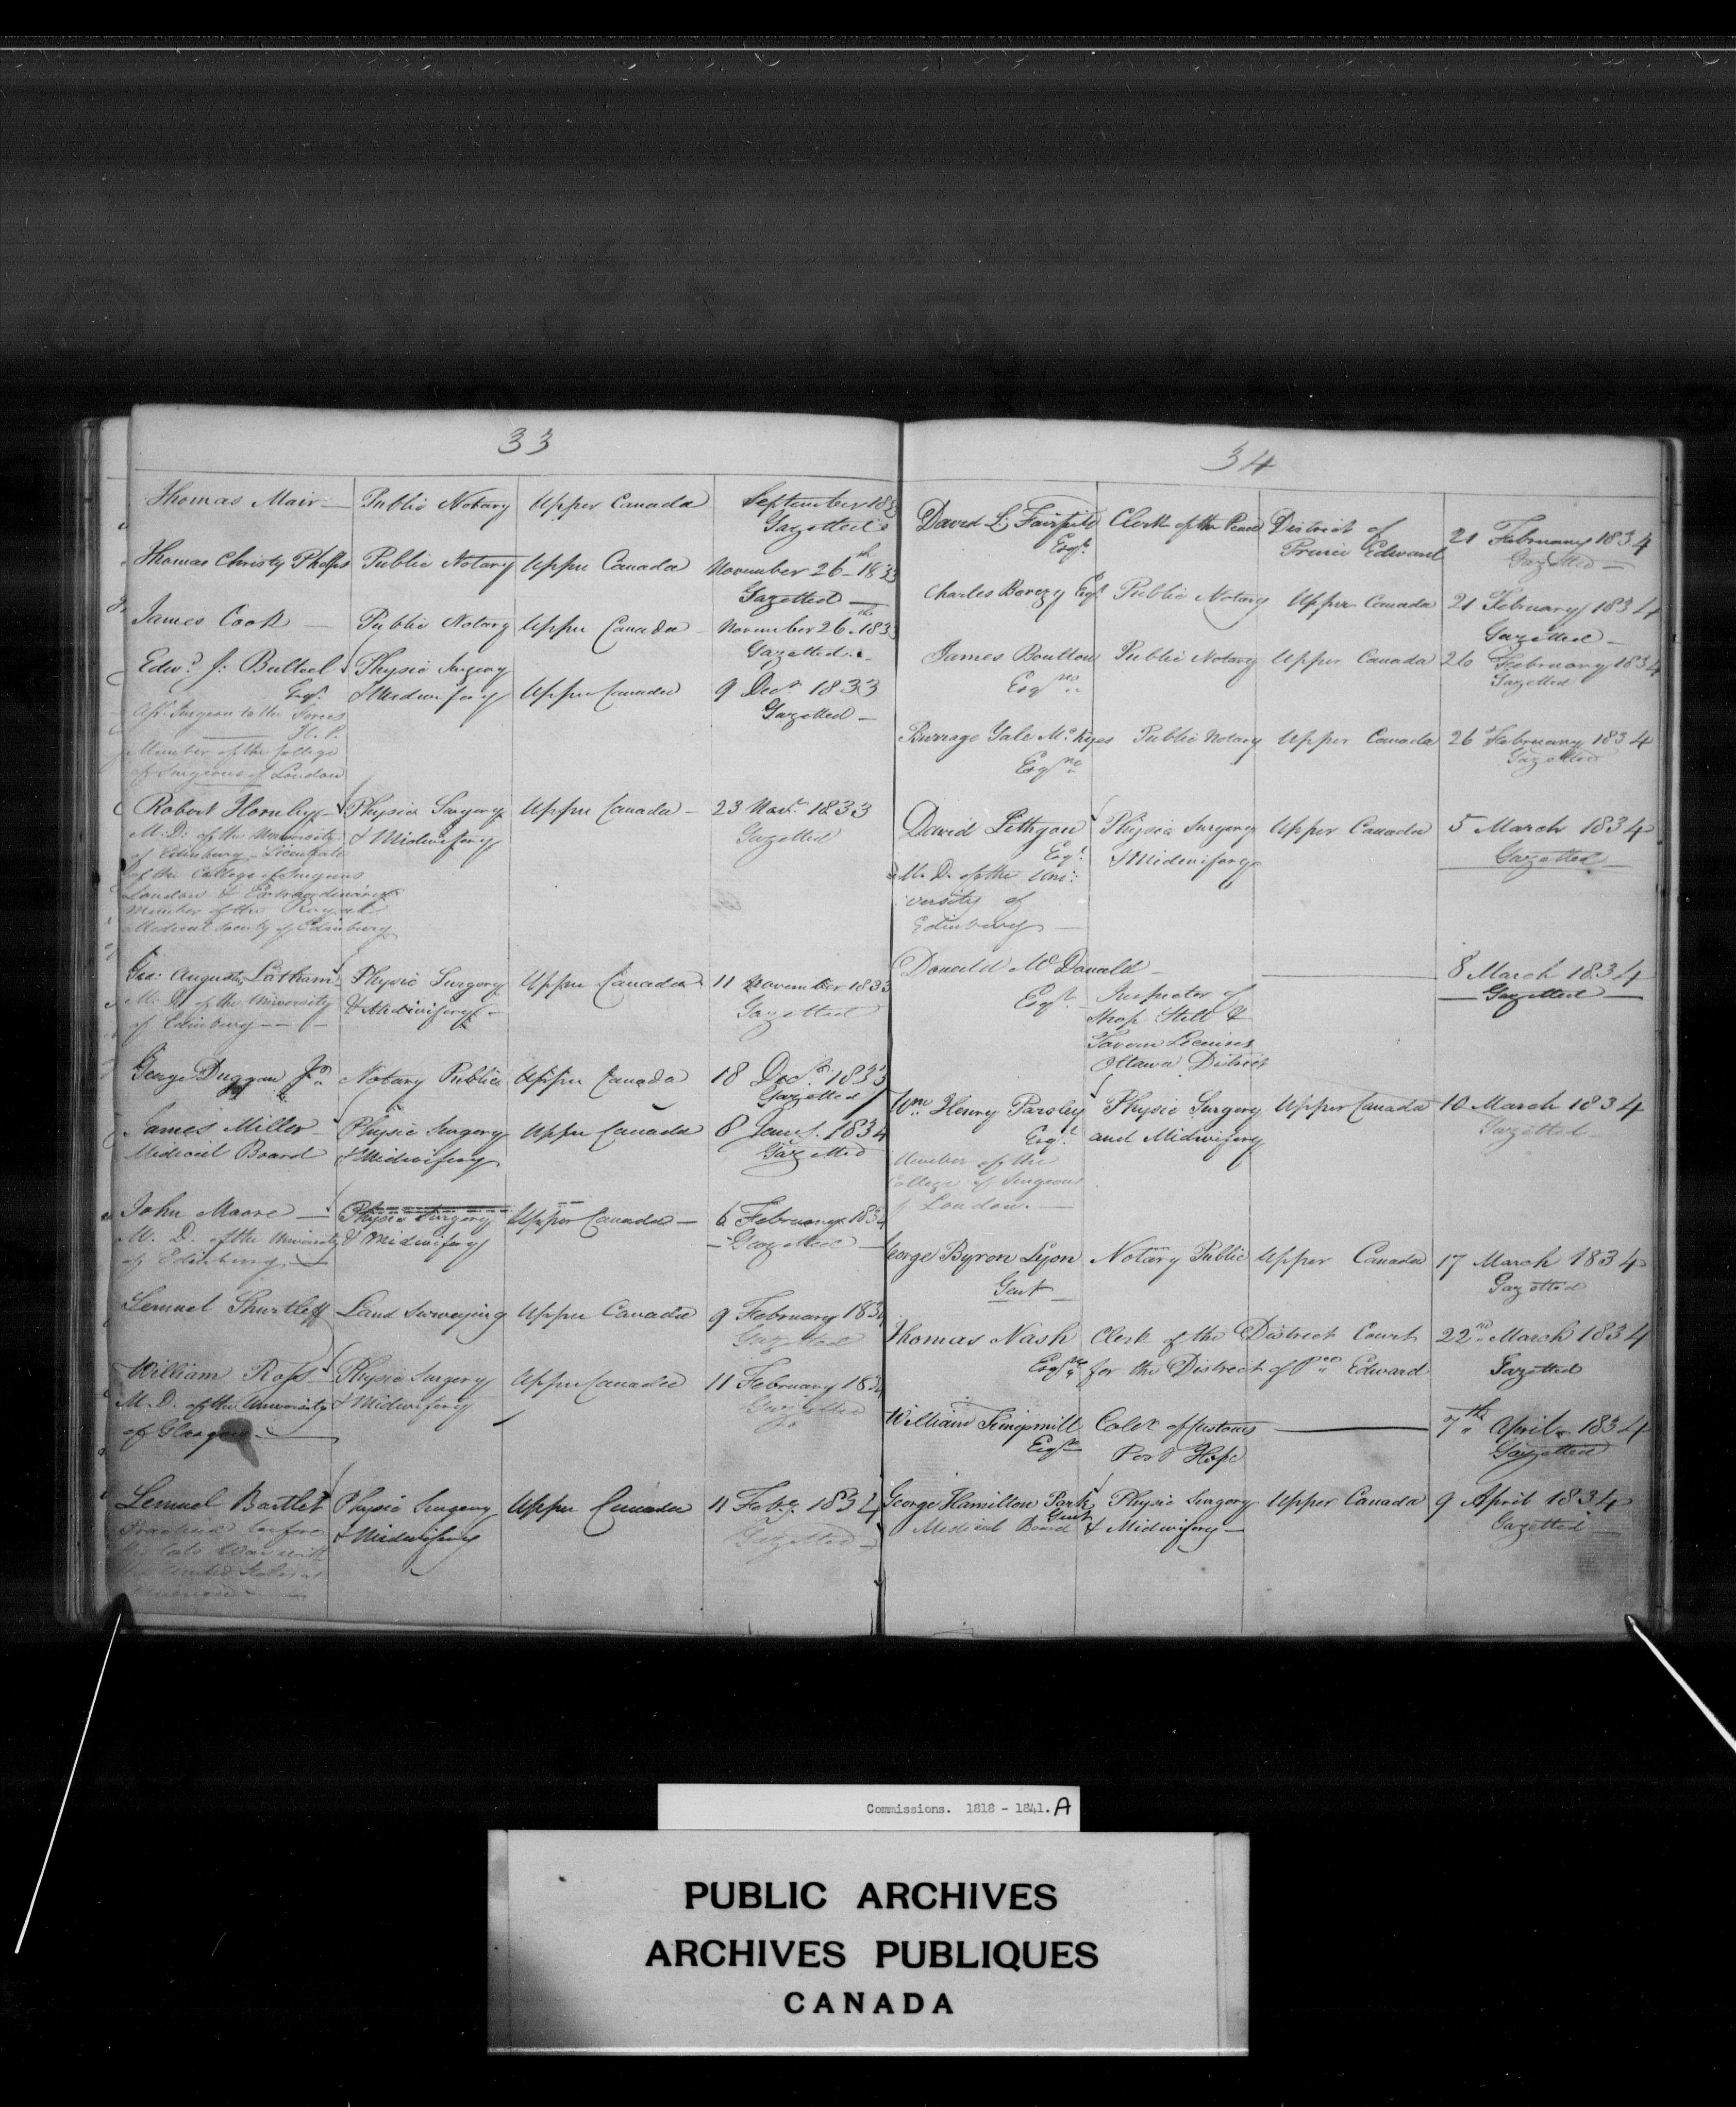 33
Thomas Mair — Public Notary Upper Canada September 183
Gazetted
Thomas Christy Phelps Public Notary Upper Canada November 26th 1833
Gazetted —
James Cook — Public Notary Upper Canada — November 26th 1833
Gazetted
Edwd J. Bulteel Physic Surgery
Esqr & Midwifery Upper Canada 9 Decr 1833
Gazetted —
Asst Surgeon to the Forces
H. P.
Member of the College
of Surgeons of London
Robert Hornby — Physic Surgery Upper Canada — 23 Novr 1833
M.D. of the University & Midwifery Gazetted
of Edinburg Licentiate
of the College of Surgeons
London & Extraordinary
Member of the Royal
Medical Society of Edinburg
Geo: Augusts Latham Physic Surgery Upper Canada 11 November 1833
M. D. of the University & Midwifery — Gazetted
of Edinburg —
George Duggan Jr Notary Public Upper Canada 18 Decr 1833
Gazetted
James Miller — Physic Surgery Upper Canada 8 Jany. 1834
Medical Board & Midwifery Gazetted
John Moore — Physic Surgery Upper Canada — 6 February 1834
M. D. of the University & Midwifery — Gazetted —
of Edinburg —
Lemuel Shurtleff Land Surveying Upper Canada 9 February 1834
Gazetted
William Ross Physic Surgery Upper Canada 11 February 1834
M. D. of the University & Midwifery Gazetted
of Glasgow —
Lemuel Bartlet Physic Surgery Upper Canada 11 Feby. 1834
Practised before & Midwifery Gazetted
the late War with
the United States of
America —
34
David L. Fairfield Clerk of the Peace District of 21 February 1834
Esqr. Prince Edward Gazetted —
Charles Berczy Esqr Public Notary Upper Canada 21 February 1834
Gazetted —
James Boulton Public Notary Upper Canada 26 February 1834
Esqre Gazetted
Burrage Yale McKyes Public Notary Upper Canada 26 February 1834
Esqre Gazetted
David Lithgow Physic Surgery Upper Canada 5 March 1834
Esqr. & Midwifery Gazetted
M. D. of the Uni:
versity of
Edinburg —
Donald McDonald — 8 March 1834
Esqr. Inspector of — Gazetted —
Shop Still &
Tavern Licenses
Ottawa District
Wm Henry Parsley Physic Surgery Upper Canada 10 March 1834
Esqr. and Midwifery Gazetted —
Member of the
College of Surgeons
of London. —
George Byron Lyon Notary Public Upper Canada 17 March 1834
Gent Gazetted
Thomas Nash Clerk of the District Court 22nd March 1834
Esqre for the District of Pce Edward Gazetted
William Kingsmill Coler of Customs — 7th April 1834
Esqr Port Hope Gazetted
George Hamilton Park Physic Surgery Upper Canada 9 April 1834
Gent
Medical Board & Midwifery — Gazetted
Commissions. 1818 - 1841. A
PUBLIC ARCHIVES
ARCHIVES PUBLIQUES
CANADA